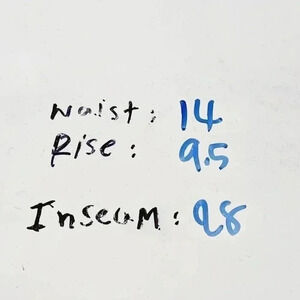 Waist: 14
Rise: 9.5
Inseam: 28